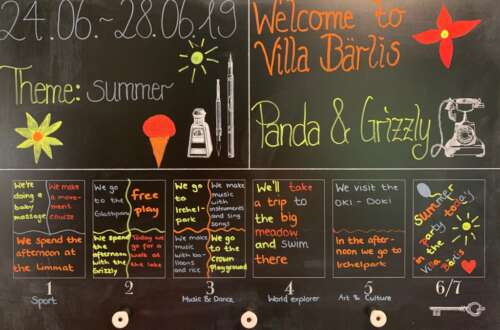 24.06.-28.06.19
Theme: summer
Welcome to
Villa Bärlis
Panda & Grizzly
We're
doing a
baby
massage
We make
a move-
ment
course
We spend the
afternoon at
the Limmat
1
Sport
We go
to the
Glattpark
free
play
We spend
the
afternoon
with the
Grizzly
Today we
go for a
walk at
the lake
2
We go
to
Irchel
park
We make
music
with
instruments
and sing
songs
We make
music
with bal-
loons
and rice
We go
to the
Crown
Playground
3
Music & Dance
We'll take
a trip to
the big
meadow
and swim
there
4
World explorer
We visit the
OKi - DOKi
In the after-
noon we go to
Irchelpark
5
Art & Culture
Summer
party today
in the
Villa Bärlis
6/7